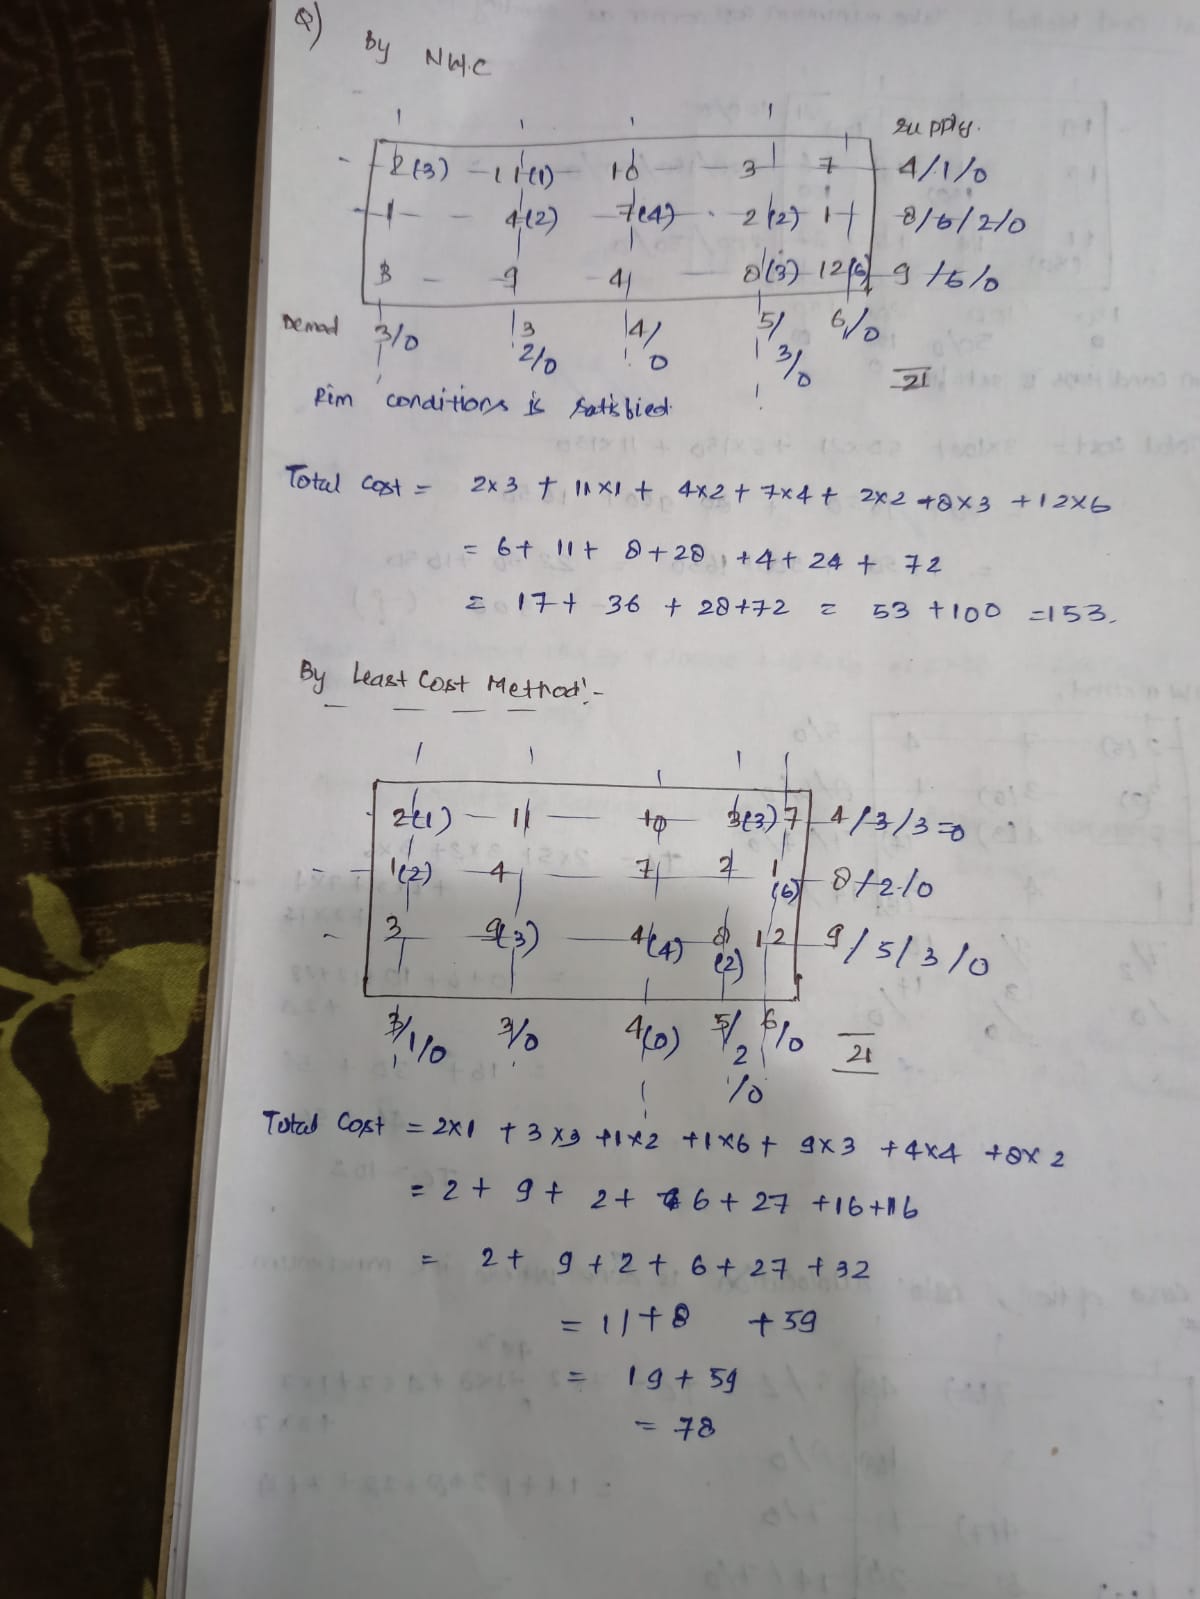 Q) By N.W.C
supply.
2(3) 11(1) 10 3 7 4/1/0
1 4(2) 7(4) 2(2) 1 8/6/2/0
3 9 4 8(3) 12(6) 9/6/0
Demad 3/0 3 4/ 5/ 6/0
2/0 0 3/0 21
Rim conditions is satisfied.
Total cost = 2x3 + 11x1 + 4x2 + 7x4 + 2x2 +8x3 +12x6
= 6+ 11+ 8+28 +4+ 24 + 72
= 17+ 36 + 28+72 = 53 +100 =153.
By Least Cost Method:-
2(1) 11 10 3(3) 7 4/3/3=0
1(2) 4 7 2 1(6) 8/2/0
3 9(3) 4(4) 8(2) 12 9/5/3/0
3/1/0 3/0 4(0) 5/2/0 6/0 21
Total Cost = 2x1 + 3x3 +1x2 +1x6 + 9x3 +4x4 +8x2
= 2 + 9 + 2 + 6 + 27 +16+16
= 2 + 9 + 2 + 6 + 27 + 32
= 11+8 +59
= 19 + 59
= 78